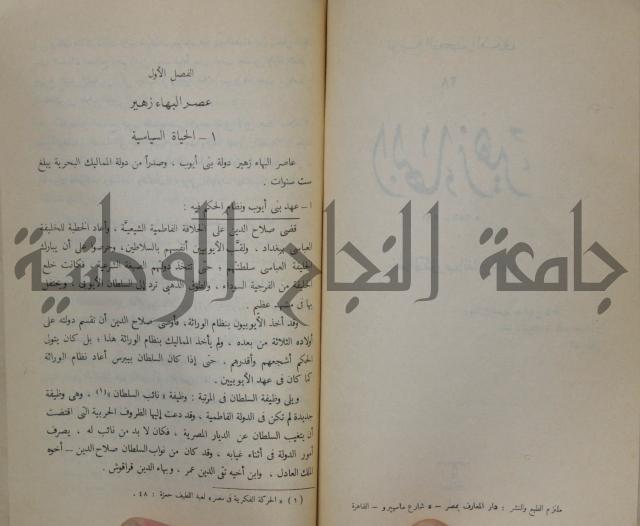 الفصل الأول
عصر البهاء زهير
١ - الحياة السياسية
عاصر البهاء زهير دولة بنى أيوب ، وصدراً من دولة المماليك البحرية يبلغ
ست سنوات .
ا - عهد بنى أيوب ونظام الحكم فيه :
قضى صلاح الدين على الخلافة الفاطمية الشيعيَّة ، وأعاد الخطبة للخليفة
العباسى ببغداد . ولقَّب الأيوبيين أنفسهم بالسلاطين ، وحرصوا على أن يبارك
الخليفة العباسى سلطتهم ؛ حتى تتخذ دولتهم الصبغة الشرعية . فكانت خلع
الخليفة من الفرجية السوداء ، والطوق الذهبى ترد إلى السلطان الأيوبى ، ويحتفل
بها فى مشهد عظيم .
وقد أخذ الأيوبيون بنظام الوراثة، فأوصى صلاح الدين أن تقسم دولته على
أولاده الثلاثة من بعده ، ولم يأخذ المماليك بنظام الوراثة هذا ؛ بل كان يتولى
الحكم أشجعهم وأقدرهم . حتى إذا كان السلطان بيبرس أعاد نظام الوراثة
كما كان فى عهد الأيوبيين .
ويلى وظيفة السلطان فى المرتبة : وظيفة « نائب السلطان »(١) ، وهى وظيفة
جديدة لم تكن فى الدولة الفاطمية ، وقد دعت إليها الظروف الحربية التى اقتضت
أن يتغيب السلطان عن الديار المصرية ، فكان لا بد من نائب له ، يصرف
أمور الدولة فى أثناء غيابه ، وقد كان من نواب السلطان صلاح الدين ــ أخوه
الملك العادل ، وابن أخيه تقى الدين عمر ، وبهاء الدين قراقوش .
( ١ ) « الحركة الفكرية فى مصر » لعبد اللطيف حمزة : ٤٨ .
ملتزم الطبع والنشر : دار المعارف بمصر - ٥ شارع ماسبيرو - القاهرة
جامعة النجاح الوطنية